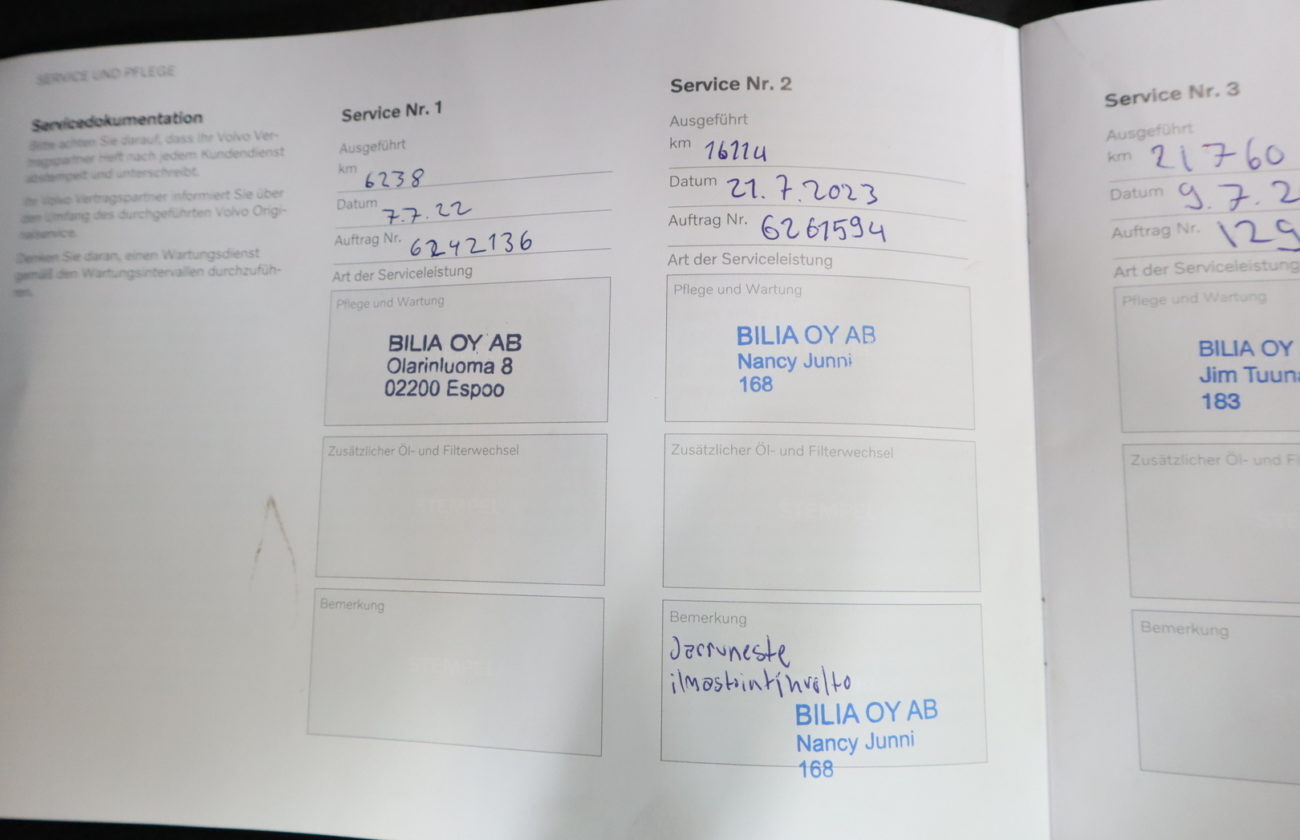 SERVICE UND PFLEGE
Servicedokumentation
Bitte achten Sie darauf, dass Ihr Volvo Ver-
tragspartner Heft nach jedem Kundendienst
abstempelt und unterschreibt.
Ihr Volvo Vertragspartner informiert Sie über
den Umfang des durchgeführten Volvo Origi-
nalservice.
Denken Sie daran, einen Wartungsdienst
gemäß den Wartungsintervallen durchzufüh-
ren.
Service Nr. 1
Ausgeführt
km 6238
Datum 7.7.22
Auftrag Nr. 6242136
Art der Serviceleistung
Pflege und Wartung
BILIA OY AB
Olarinluoma 8
02200 Espoo
Zusätzlicher Öl- und Filterwechsel
STEMPEL
Bemerkung
STEMPEL
Service Nr. 2
Ausgeführt
km 16114
Datum 21.7.2023
Auftrag Nr. 6261594
Art der Serviceleistung
Pflege und Wartung
BILIA OY AB
Nancy Junni
168
Zusätzlicher Öl- und Filterwechsel
STEMPEL
Bemerkung
Jarruneste
BILIA OY AB
Nancy Junni
168
Service Nr. 3
Ausgeführt
km 21760
Datum 9.7.2
Auftrag Nr. 129
Art der Serviceleistung
Pflege und Wartung
BILIA OY
Jim Tuuna
183
Zusätzlicher Öl- und Fi
Bemerkung